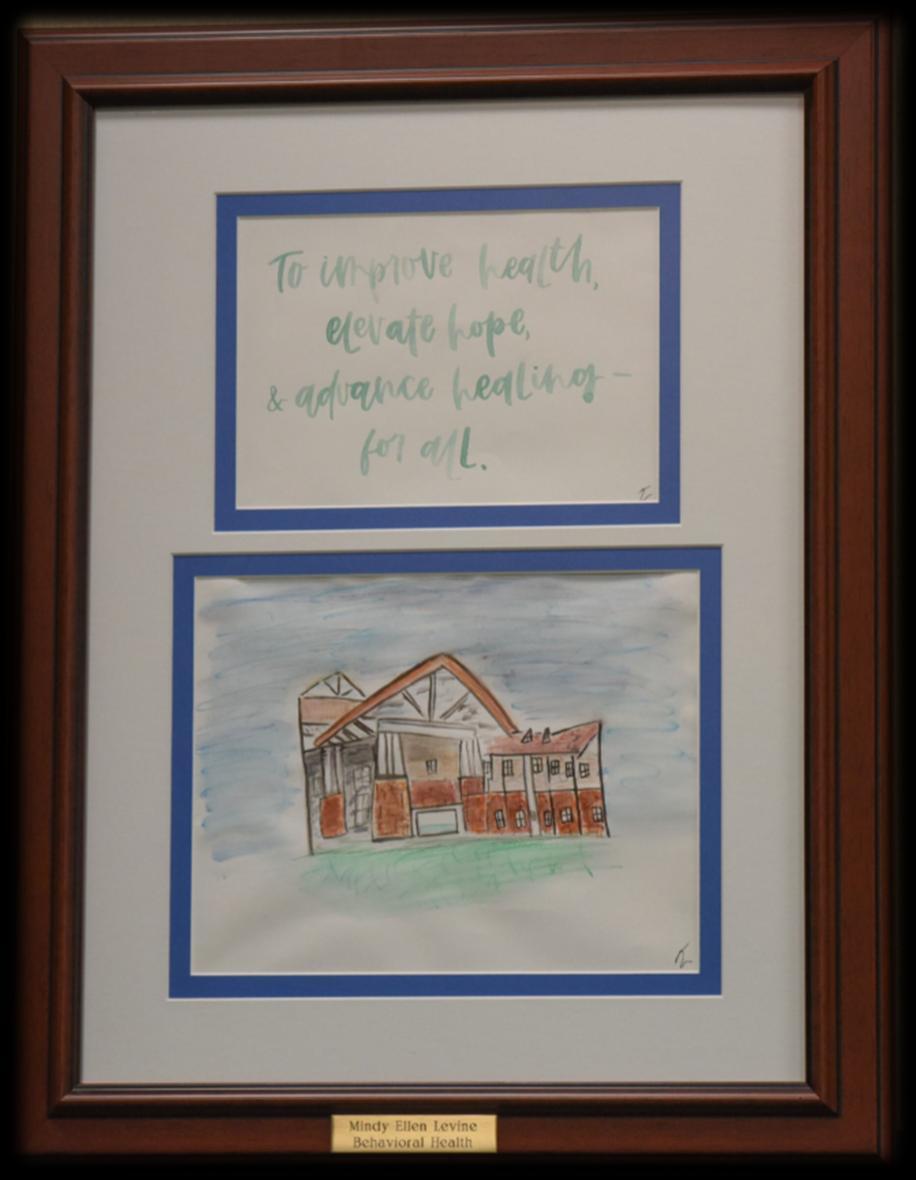 To improve health,
elevate hope,
& advance healing -
for all.
Mindy Ellen Levine
Behavioral Health